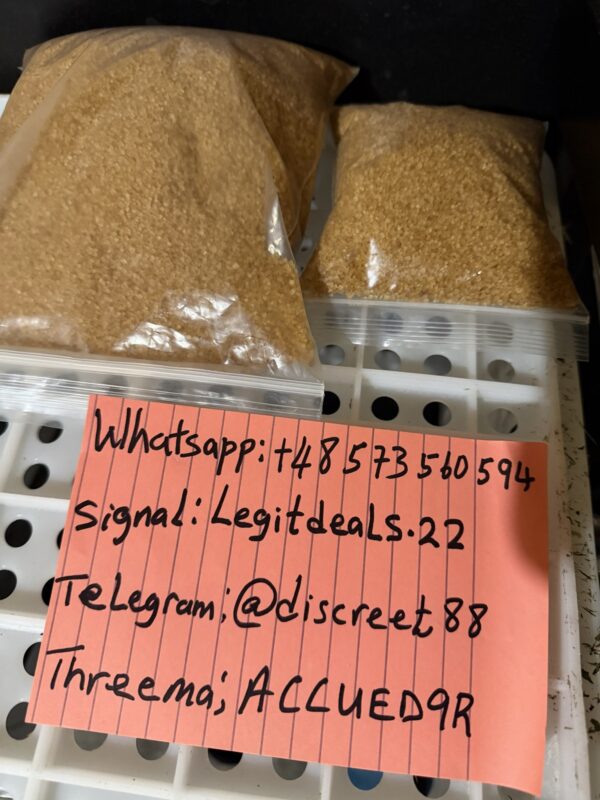 Whatsapp: +48 573 560 594
Signal: Legitdeals.22
Telegram; @discreet88
Threema; ACCUED9R